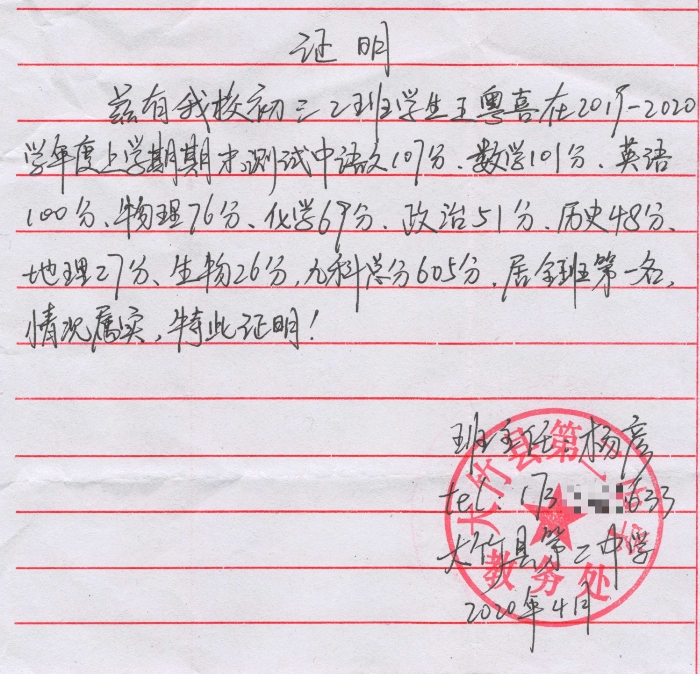 证明
兹有我校初三2班学生王粤喜在2019-2020
学年度上学期期末测试中语文107分、数学101分、英语
100分、物理76分、化学69分、政治51分、历史48分、
地理27分、生物26分,九科总分605分,居全班第一名,
情况属实,特此证明!
班主任:杨彦
tel:173 633
大竹县第二中学
2020年4月
大竹县第二中学
教务处